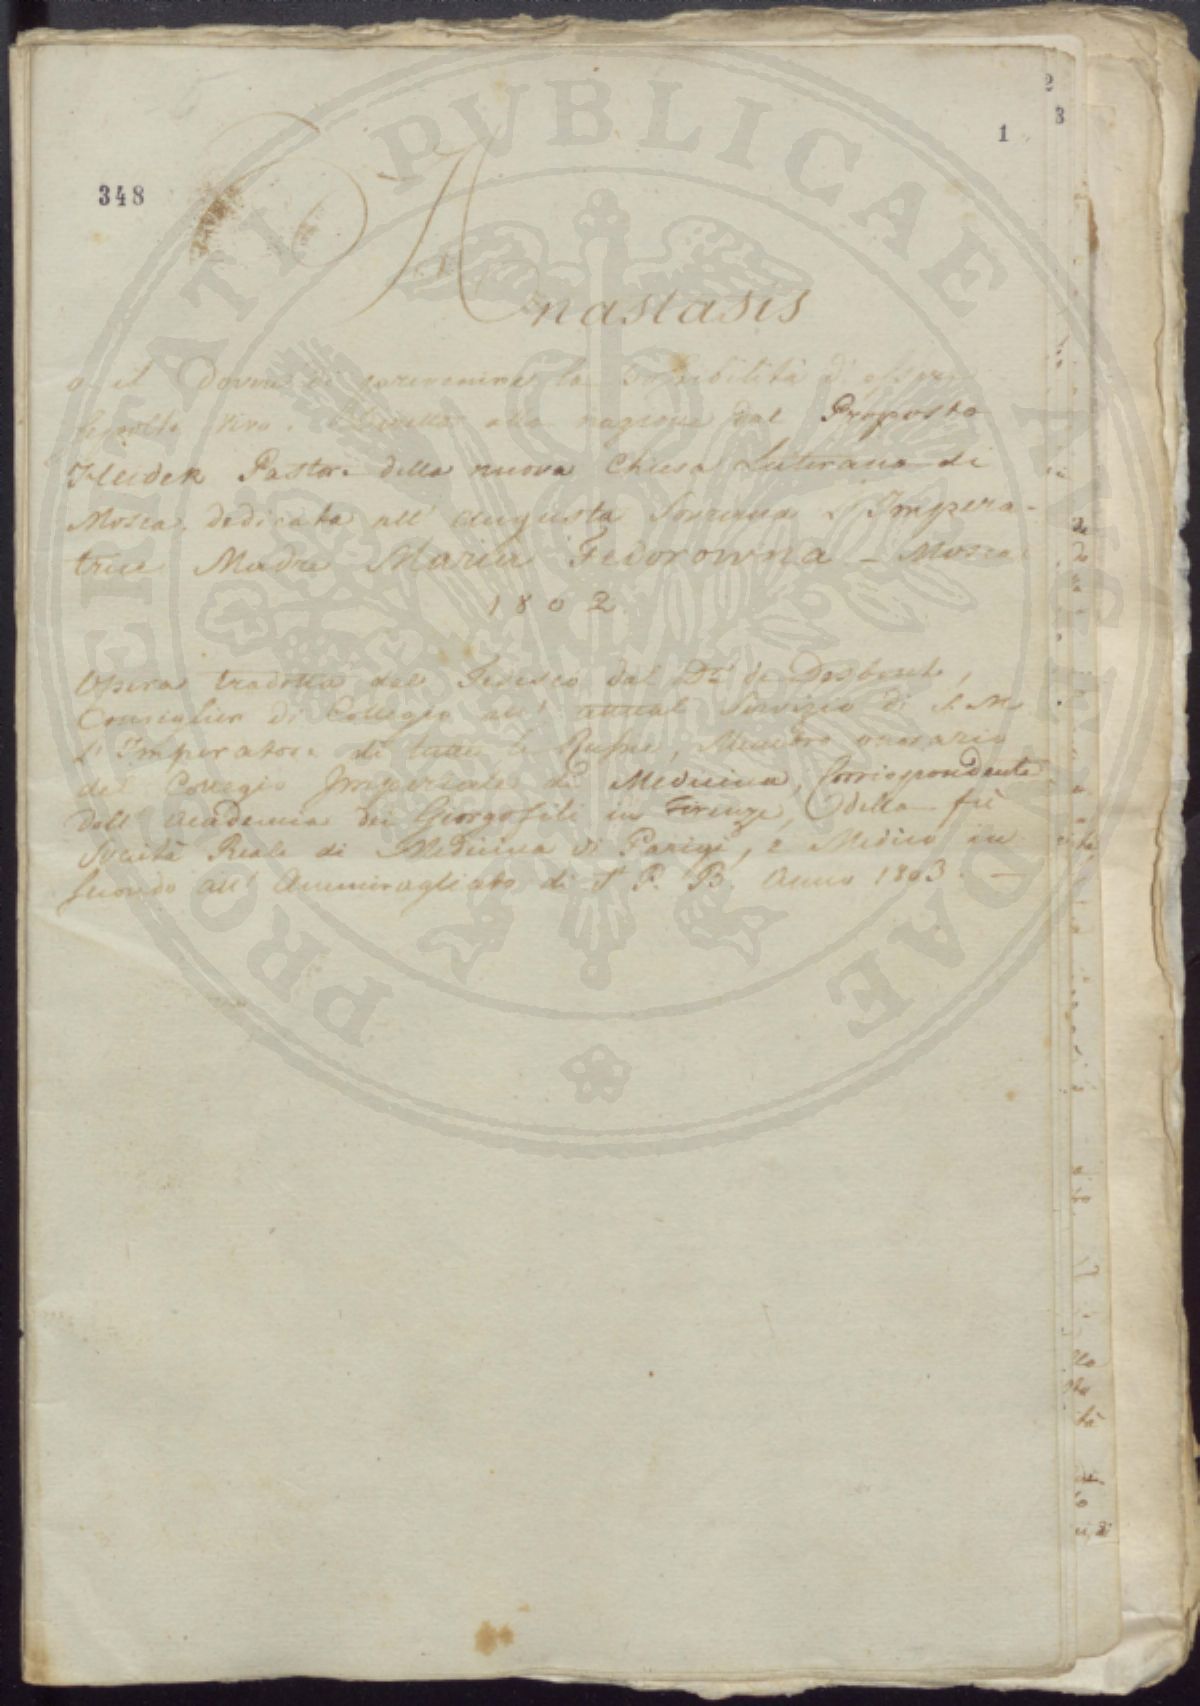 2
3
1
348
PROSPERITATI PUBLICAE AUGENDAE
Anastasis
o il Dovere di prevenire la possibilità d'essere
sepolto vivo. alla nazione dal Proposto
Heidek Pastore della nuova Chiesa Luterana di
Mosca, dedicata all' Augusta Sovrana L'Impera-
trice Madre Maria Fedorowna – Mosca
1802
Opera tradotta dal Tedesco dal Dr. de
Consiglier di Collegio all' attual Servizio di S. M.
L'Imperatore di tutte le Russie, Membro onorario
del Collegio Imperiale di Medicina, Corrispondente
dell' Academia dei Georgofili in Firenze, della fù
Società Reale di Medicina di Parigi, e Medico in
secondo all' Ammiragliato di S. P. B. Anno 1803. –